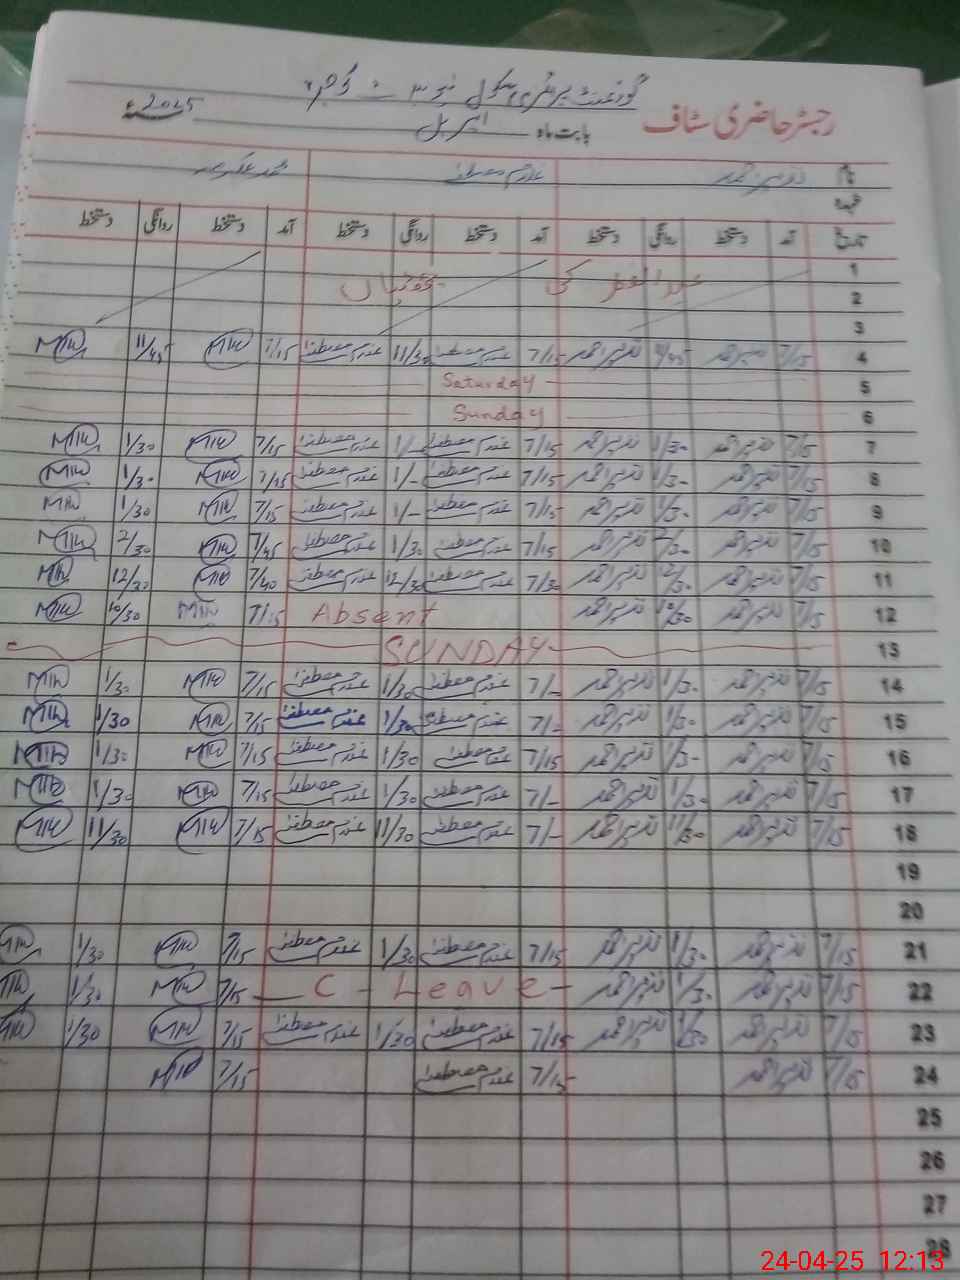 گورنمنٹ پرائمری سکول نمبر ۳
رجسٹر حاضری سٹاف بابت ماہ اپریل 2025ء
نام نذیر احمد غلام مصطفیٰ
عہدہ
تاریخ آمد دستخط روانگی دستخط آمد دستخط روانگی دستخط آمد دستخط روانگی دستخط
1 عید الفطر کی چھٹیاں
2
3
4 7/15 نذیر احمد نذیر احمد 7/15 غلام مصطفیٰ 11/30 غلام مصطفیٰ 7/15 MTW 11/45 MTW
5 Saturday
6 Sunday
7 7/15 نذیر احمد 1/30 نذیر احمد 7/15 غلام مصطفیٰ 1/- غلام مصطفیٰ 7/15 MTW 1/30 MTW
8 7/15 نذیر احمد 1/30 نذیر احمد 7/15 غلام مصطفیٰ 1/- غلام مصطفیٰ 7/15 MTW 1/30 MTW
9 7/15 نذیر احمد 1/30 نذیر احمد 7/15 غلام مصطفیٰ 1/- غلام مصطفیٰ 7/15 MTW 1/30 MTW
10 7/15 نذیر احمد 2/30 نذیر احمد 7/15 غلام مصطفیٰ 1/30 غلام مصطفیٰ 7/45 MTW 2/30 MTW
11 7/15 نذیر احمد 12/30 نذیر احمد 7/30 غلام مصطفیٰ 12/30 غلام مصطفیٰ 7/40 MTW 12/30 MTW
12 7/15 نذیر احمد 10/30 نذیر احمد Absent 7/15 MTW 10/30 MTW
13 SUNDAY
14 7/15 نذیر احمد 1/30 نذیر احمد 7/- غلام مصطفیٰ 1/30 غلام مصطفیٰ 7/15 MTW 1/30 MTW
15 7/15 نذیر احمد 1/30 نذیر احمد 7/- غلام مصطفیٰ 1/30 غلام مصطفیٰ 7/15 MTW 1/30 MTW
16 7/15 نذیر احمد 1/30 نذیر احمد 7/15 غلام مصطفیٰ 1/30 غلام مصطفیٰ 7/15 MTW 1/30 MTW
17 7/15 نذیر احمد 1/30 نذیر احمد 7/- غلام مصطفیٰ 1/30 غلام مصطفیٰ 7/15 MTW 1/30 MTW
18 7/15 نذیر احمد 11/30 نذیر احمد 7/- غلام مصطفیٰ 11/30 غلام مصطفیٰ 7/15 MTW 11/30 MTW
19
20
21 7/15 نذیر احمد 1/30 نذیر احمد 7/15 غلام مصطفیٰ 1/30 غلام مصطفیٰ 7/15 MTW 1/30 MTW
22 7/15 نذیر احمد 1/30 نذیر احمد C - Leave 7/15 MTW 1/30 MTW
23 7/15 نذیر احمد 1/30 نذیر احمد 7/15 غلام مصطفیٰ 1/30 غلام مصطفیٰ 7/15 MTW 1/30 MTW
24 7/15 نذیر احمد 7/15 غلام مصطفیٰ 7/15 MTW
25
26
27
28
24-04-25 12:13